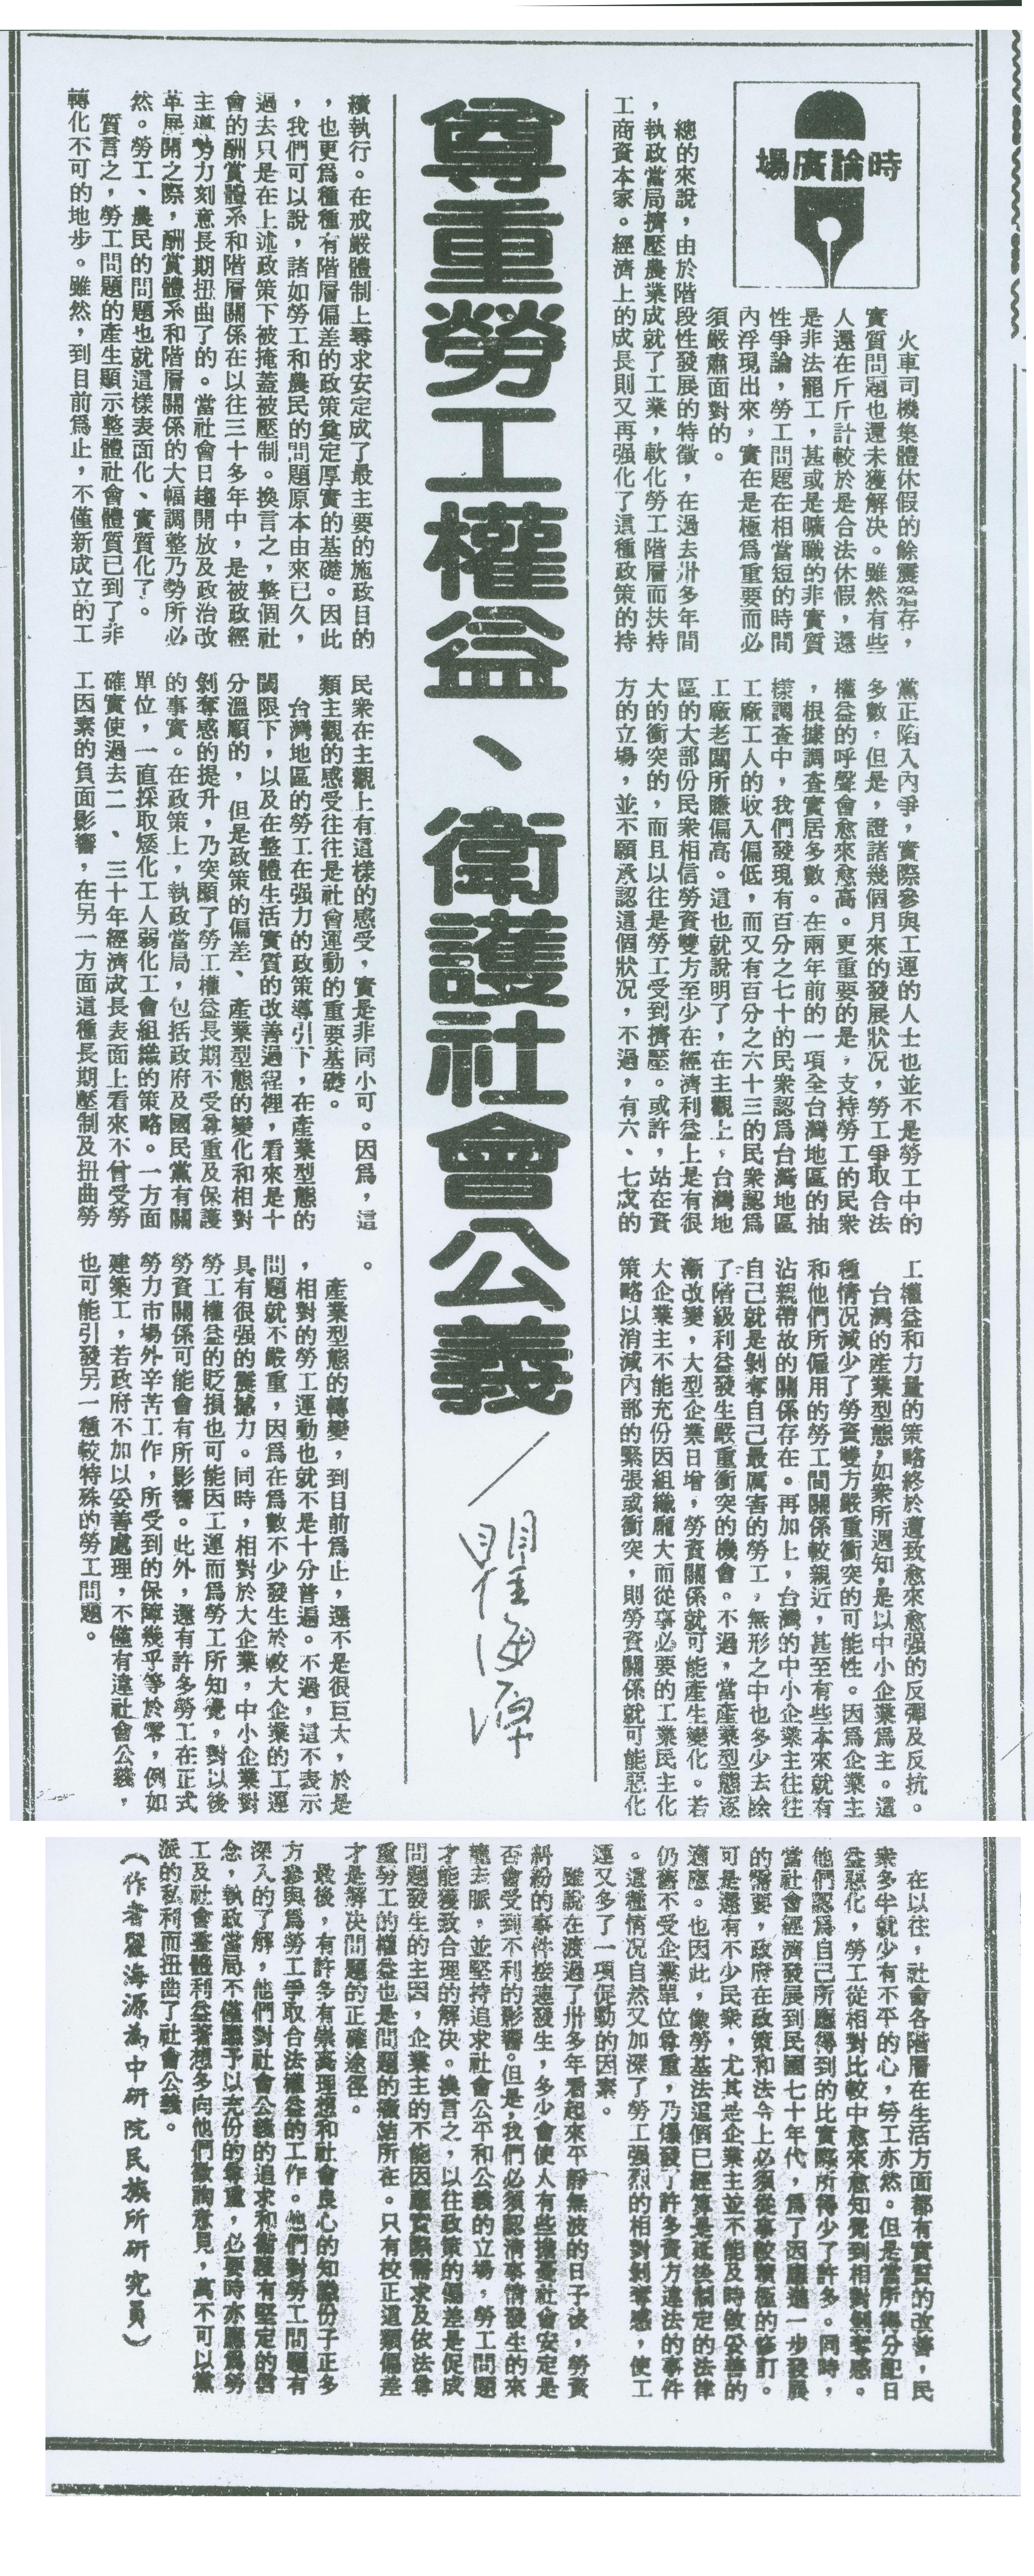 時論廣場
尊重勞工權益、衛護社會公義／瞿海源
火車司機集體休假的餘震猶存，
實質問題也還未獲解決。雖然有些
人還在斤斤計較於是合法休假，還
是非法罷工，甚或是曠職的非實質
性爭論，勞工問題在相當短的時間
內浮現出來，實在是極爲重要而必
須嚴肅面對的。
總的來說，由於階段性發展的特徵，在過去卅多年間
，執政當局擠壓農業成就了工業，軟化勞工階層而扶持
工商資本家。經濟上的成長則又再强化了這種政策的持
續執行。在戒嚴體制上尋求安定成了最主要的施政目的
，也更爲種種有階層偏差的政策奠定厚實的基礎。因此
，我們可以說，諸如勞工和農民的問題原本由來已久，
過去只是在上述政策下被掩蓋被壓制。換言之，整個社
會的酬賞體系和階層關係在以往三十多年中，是被政經
主導勢力刻意長期扭曲了的。當社會日趨開放及政治改
革展開之際，酬賞體系和階層關係的大幅調整乃勢所必
然。勞工、農民的問題也就這樣表面化、實質化了。
質言之，勞工問題的產生顯示整體社會體質已到了非
轉化不可的地步。雖然，到目前爲止，不僅新成立的工
黨正陷入內爭，實際參與工運的人士也並不是勞工中的
多數，但是，證諸幾個月來的發展狀况，勞工爭取合法
權益的呼聲會愈來愈高。更重要的是，支持勞工的民衆
，根據調查實居多數。在兩年前的一項全台灣地區的抽
樣調查中，我們發現有百分之七十的民衆認爲台灣地區
工廠工人的收入偏低，而又有百分之六十三的民衆認爲
工廠老闆所賺偏高。這也就說明了，在主觀上，台灣地
區的大部份民衆相信勞資雙方至少在經濟利益上是有很
大的衝突的，而且以往是勞工受到擠壓。或許，站在資
方的立場，並不願承認這個狀况，不過，有六、七成的
民衆在主觀上有這樣的感受，實是非同小可。因爲，這
類主觀的感受往往是社會運動的重要基礎。
台灣地區的勞工在强力的政策導引下，在產業型態的
閾限下，以及在整體生活實質的改善過程裡，看來是十
分溫順的，但是政策的偏差、產業型態的變化和相對
剝奪感的提升，乃突顯了勞工權益長期不受尊重及保護
的事實。在政策上，執政當局，包括政府及國民黨有關
單位，一直採取矮化工人弱化工會組織的策略。一方面
確實使過去二、三十年經濟成長表面上看來不曾受勞
工因素的負面影響，在另一方面這種長期壓制及扭曲勞
工權益和力量的策略終於遭致愈來愈强的反彈及反抗。
台灣的產業型態，如衆所週知，是以中小企業爲主。這
種情况減少了勞資雙方嚴重衝突的可能性。因爲企業主
和他們所僱用的勞工間關係較親近，甚至有些本來就有
沾親帶故的關係存在。再加上，台灣的中小企業主往往
自己就是剝奪自己最厲害的勞工，無形之中也多少去除
了階級利益發生嚴重衝突的機會。不過，當產業型態逐
漸改變，大型企業日增，勞資關係就可能產生變化。若
大企業主不能充份因組織龐大而從事必要的工業民主化
策略以消減內部的緊張或衝突，則勞資關係就可能惡化
。
產業型態的轉變，到目前爲止，還不是很巨大，於是
，相對的勞工運動也就不是十分普遍。不過，這不表示
問題就不嚴重，因爲在爲數不少發生於較大企業的工運
具有很强的震撼力。同時，相對於大企業，中小企業對
勞工權益的貶損也可能因工運而爲勞工所知覺，對以後
勞資關係可能會有所影響。此外，還有許多勞工在正式
勞力市場外辛苦工作，所受到的保障幾乎等於零，例如
建築工，若政府不加以妥善處理，不僅有違社會公義，
也可能引發另一種較特殊的勞工問題。
在以往，社會各階層在生活方面都有實質的改善，民
衆多半就少有不平的心，勞工亦然。但是當所得分配日
益惡化，勞工從相對比較中愈來愈知覺到相對剝奪感。
他們認爲自己所應得到的比實際所得少了許多。同時，
當社會經濟發展到民國七十年代，爲了因應進一步發展
的需要，政府在政策和法令上必須從事較積極的修訂。
可是還有不少民衆，尤其是企業主並不能及時做妥善的
適應。也因此，像勞基法這個已經算是延後制定的法律
仍舊不受企業單位尊重，乃爆發了許多資方違法的事件
。這種情况自然又加深了勞工强烈的相對剝奪感，使工
運又多了一項促動的因素。
雖說在渡過了卅多年看起來平靜無波的日子後，勞資
糾紛的事件接連發生，多少會使人有些擔憂社會安定是
否會受到不利的影響。但是，我們必須認清事情發生的來
龍去脈，並堅持追求社會公平和公義的立場，勞工問題
才能獲致合理的解決。換言之，以往政策的偏差是促成
問題發生的主因，企業主的不能因應實際需求及依法尊
重勞工的權益也是問題的癥結所在。只有校正這類偏差
才是解決問題的正確途徑。
最後，有許多有崇高理想和社會良心的知識份子正多
方參與爲勞工爭取合法權益的工作。他們對勞工問題有
深入的了解，他們對社會公義的追求和衛護有堅定的信
念，執政當局不僅應予以充份的尊重，必要時亦應爲勞
工及社會整體利益著想多向他們徵詢意見，萬不可以黨
派的私利而扭曲了社會公義。
（作者瞿海源為中研院民族所研究員）